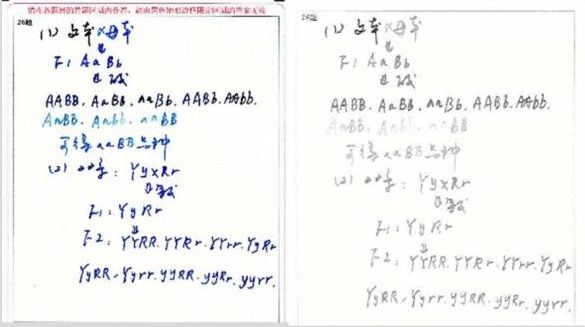 请在各题目的答题区域内作答,超出黑色矩形边框限定区域的答案无效
26题
(1) 父本×母本
F1 AaBb
AABB. AaBB. aaBb. AABb. AAbb.
AaBb. Aabb. aaBB
可得aaBB品种
(2) : YyxRr
F1: YyRr
F2: YYRR. YYRr. YYrr. YyRr
YyRR. Yyrr. yyRR. yyRr. yyrr.
(1) 父本×母本
F1 AaBb
AABB. AaBB. aaBb. AABb. AAbb.
AaBb. Aabb. aaBB
可得aaBB品种
(2) : YyxRr
F1: YyRr
F2: YYRR. YYRr. YYrr. YyRr
YyRR. Yyrr. yyRR. yyRr. yyrr.